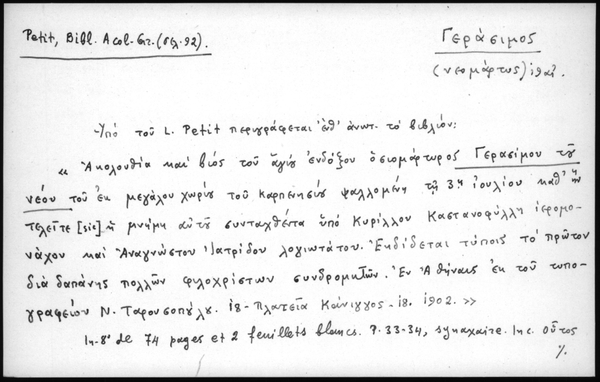 Petit, Bibl. Acol. Gr. (σελ. 92).
Γεράσιμος
(νεομάρτυς) ιθʹ αἰ.
Ὑπὸ τοῦ L. Petit περιγράφεται ἐνθ' ἀνωτ. τὸ βιβλίον:
« Ἀκολουθία καὶ βίος τοῦ ἁγίου ἐνδόξου ὁσιομάρτυρος Γερασίμου τοῦ
νέου τοῦ ἐκ μεγάλου χωρίου τοῦ Καρπενησίου ψαλλομένη τῇ 3ῃ ἰουλίου καθ' ἥν
τελεῖτε [sic] ἡ μνήμη αὐτοῦ συνταχθέντα ὑπὸ Κυρίλλου Καστανοφύλλη ἱερομο-
νάχου καὶ Ἀναγνώστου Ἰατρίδου λογιωτάτου. Ἐκδίδεται τύποις τὸ πρῶτον
διὰ δαπάνης πολλῶν φιλοχρίστων συνδρομητῶν. Ἐν Ἀθήναις ἐκ τοῦ τυπο-
γραφείου Ν. Ταρουσοπούλου. 18 - Πλατεῖα Κάνιγγος - 18. 1902. »
In-8° de 74 pages et 2 feuillets blancs. P. 33-34, synaxaire. Inc. Οὗτος
%.